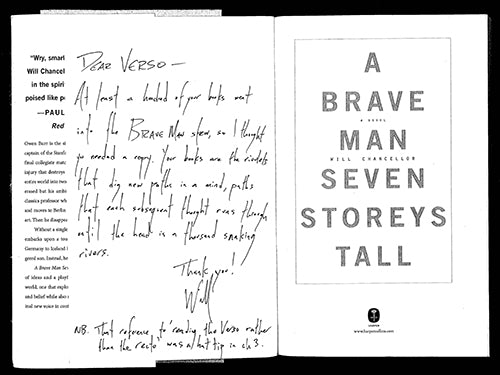 "Wry, smar
Will Chancel
in the spiri
poised like p
—PAUL
Red
Owen Burr is the s
captain of the Stanfo
final collegiate matc
injury that destroys
entire world into two
erased but his ambi
classics professor wh
and moves to Berlin
art. Then he disappe
Without a single
embarks upon a tou
Germany to Iceland i
gered son. Instead, he
A Brave Man Se
of ideas and a playf
world, one that explo
and belief while also
ital new voice to cont
DEAR VERSO —
At least a hundred of your books went
into the BRAVE MAN stew, so I thought
you needed a copy. Your books are the rivulets
that dig new paths in a mind, paths
that each subsequent thought runs through
until the head is a thousand snaking
rivers.
Thank you!
Will
NB. That reference to 'reading the Verso rather
than the recto' was a hat tip in ch 3.
A
BRAVE
A NOVEL
MAN
WILL CHANCELLOR
SEVEN
STOREYS
TALL
HARPER
www.harpercollins.com